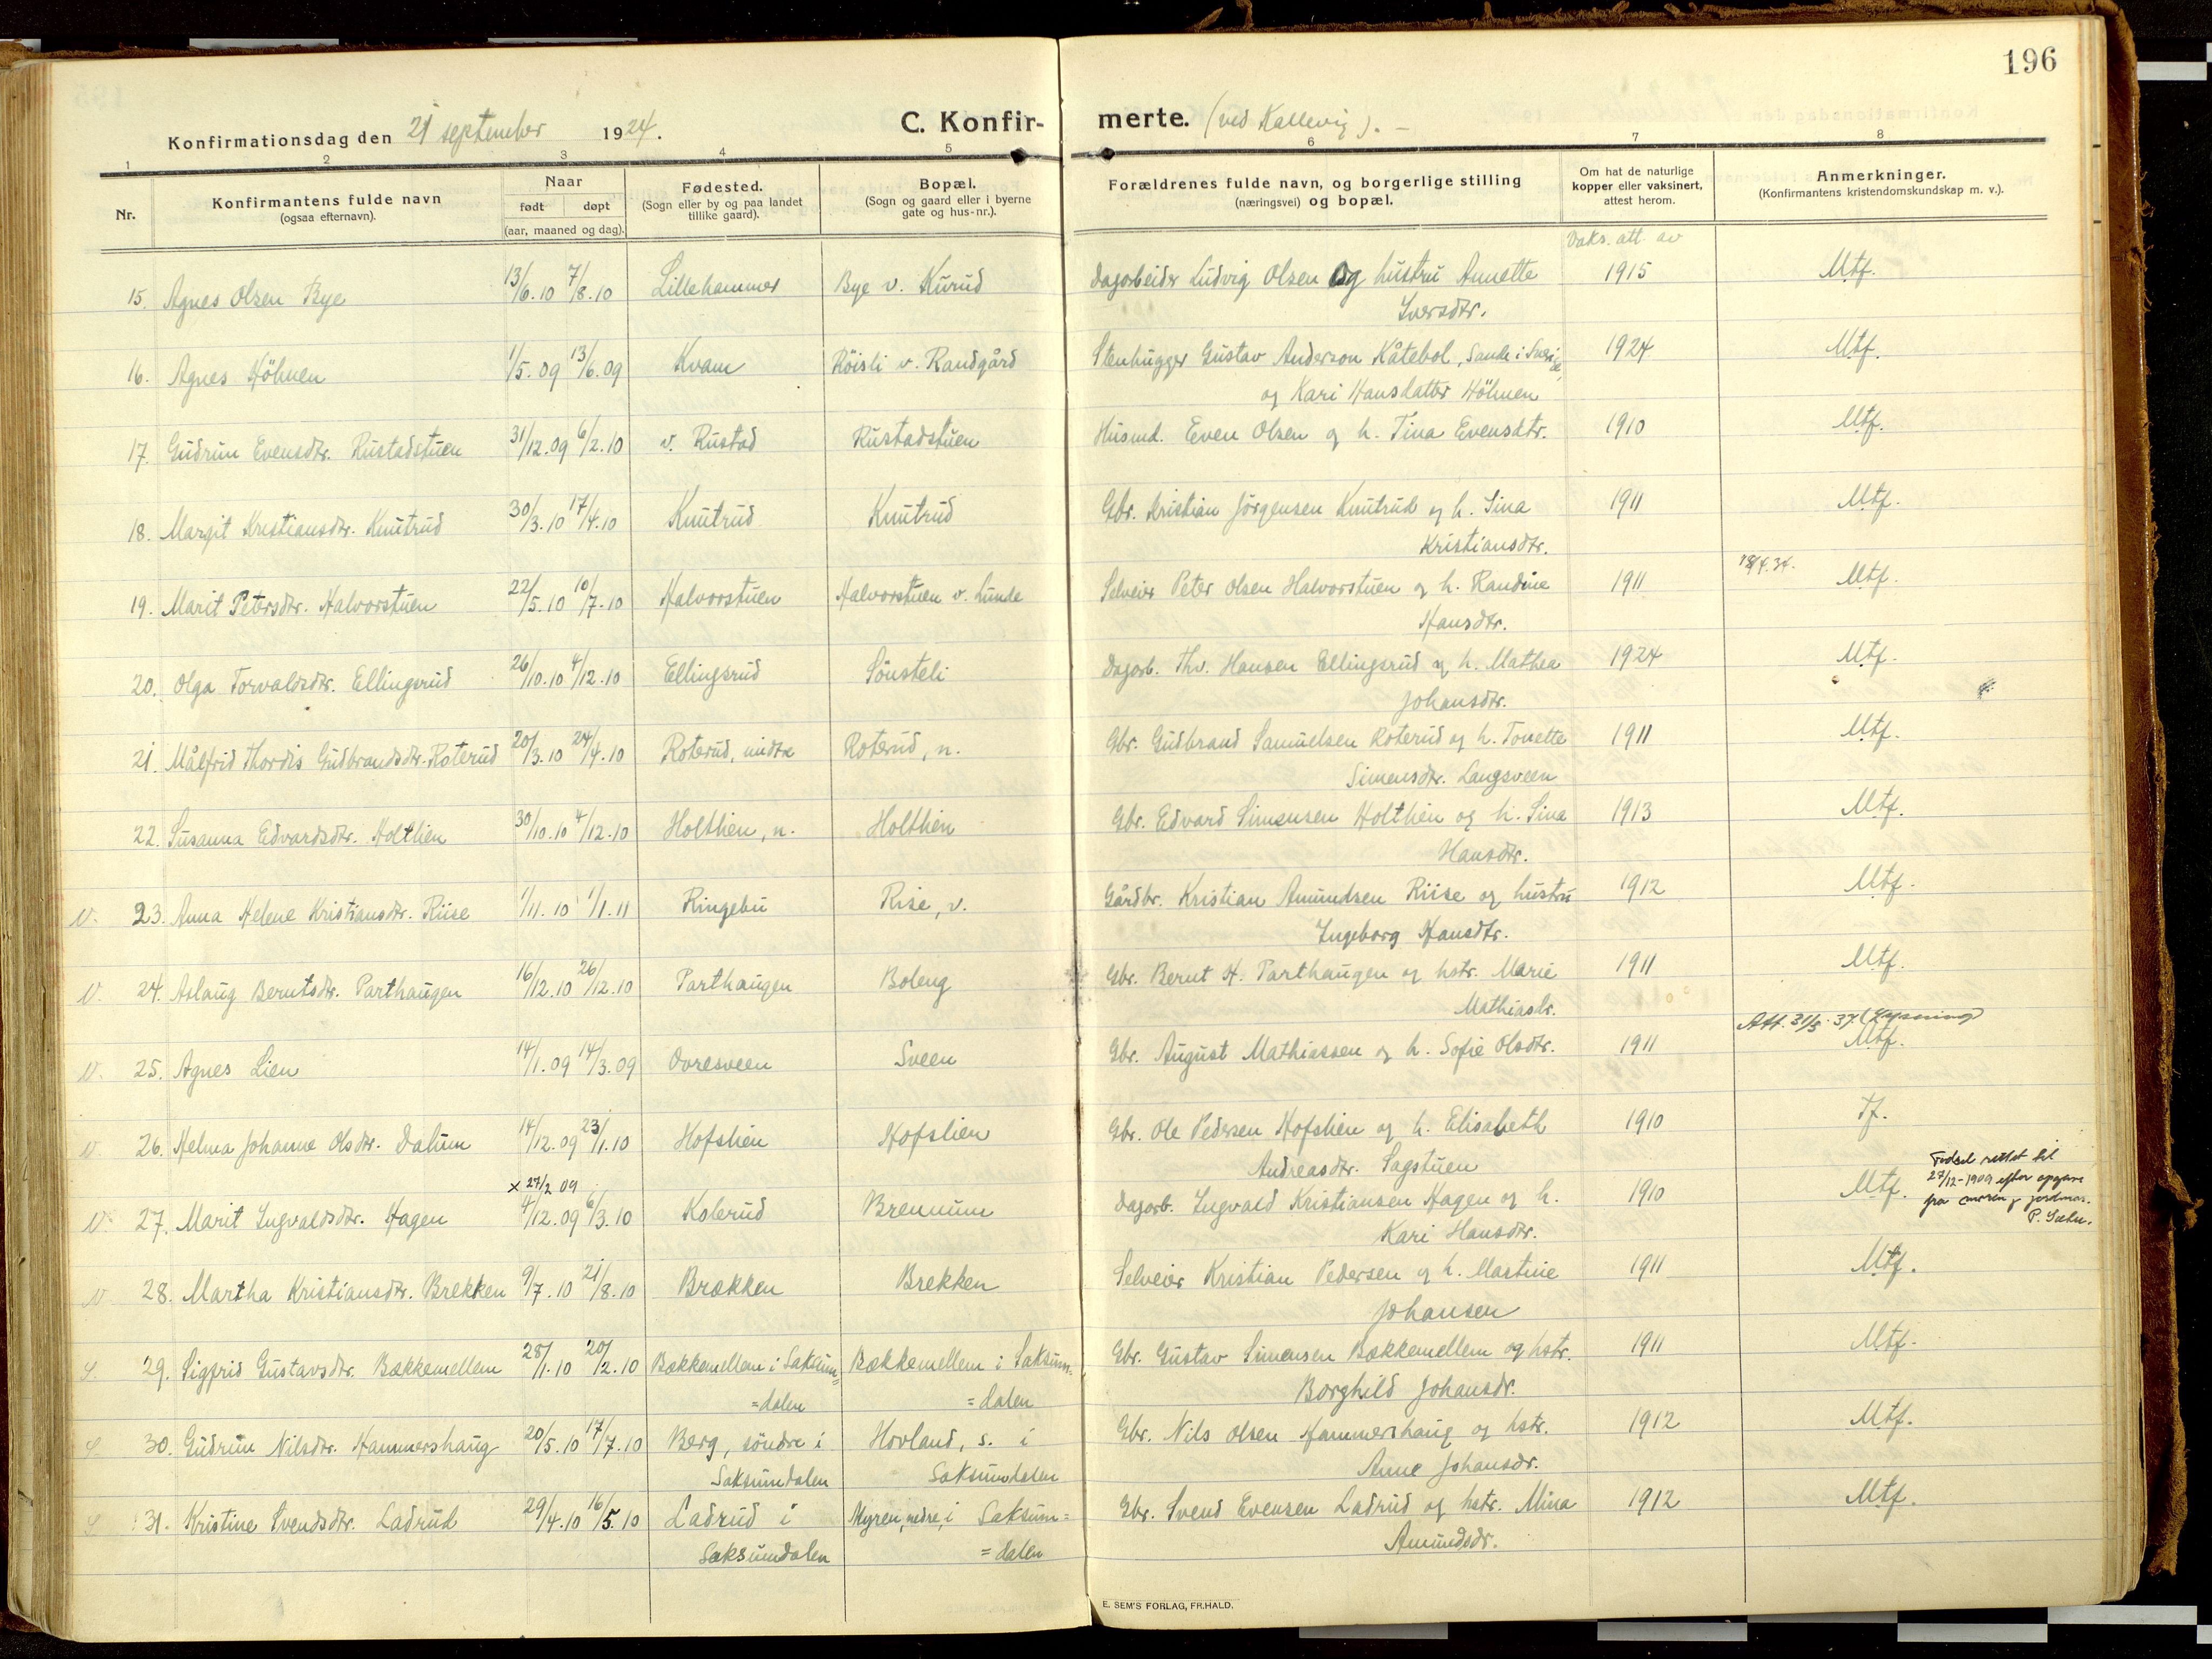 196
Konfirmationsdag den 21 september 1924.
C. Konfir-merte. (ved Kallevig). -
1 2 3 4 5 6 7 8
Nr.
Konfirmantens fulde navn
(ogsaa efternavn).
Naar
født døpt
(aar, maaned og dag).
Fødested.
(Sogn eller by og paa landet
tillike gaard).
Bopæl.
(Sogn og gaard eller i byerne
gate og hus-nr.).
Forældrenes fulde navn, og borgerlige stilling
(næringsvei) og bopæl.
Om hat de naturlige
kopper eller vaksinert,
attest herom.
Anmerkninger.
(Konfirmantens kristendomskundskap m. v.).
Vaks. att. av
15. Agnes Olsen Bye 13/6.10 7/8.10 Lillehammer Bye v. Kurud Dagarbeider Ludvig Olsen og hustru Annette 1915 Mtf.
Iversdtr.
16. Agnes Höhnen 1/5.09 13/6.09 Kvam Röisli v. Randgård Stenhugger Gustav Anderson Kåtebol, Sande i Sverige 1924 Mtf.
og Kari Hansdatter Höhnen
17. Gudrun Evensdtr. Rustadstuen 31/12.09 6/2.10 v. Rustad Rustadstuen Husmd. Even Olsen og h. Tina Evensdtr. 1910 Mtf.
18. Margit Kristiansdtr. Knutrud 30/3.10 17/4.10 Knutrud Knutrud Gbr. Kristian Jörgensen Knutrud og h. Sina 1911 Mtf.
Kristiansdtr.
19. Marit Petersdtr. Halvorstuen 22/5.10 10/7.10 Halvorstuen Halvorstuen v. Lunde Selveier Peter Olsen Halvorstuen og h. Randine 1911 Mtf.
Hansdtr.
20. Olga Torvaldsdtr. Ellingsrud 26/10.10 4/12.10 Ellingsrud Sönsteli Dagarb. Thv. Hansen Ellingsrud og h. Mathea 1924 Mtf.
Johansdtr.
21. Målfrid Thordis Gudbrandsdtr. Roterud 20/3.10 24/4.10 Roterud, nidre Roterud, n. Gbr. Gudbrand Samuelsen Roterud og h. Tonette 1911 Mtf.
Simensdtr. Langsveen
22. Susanna Edvardsdtr. Holthien 30/10.10 4/12.10 Holthien, n. Holthien Gbr. Edvard Simensen Holthien og h. Sina 1913 Mtf.
Hansdtr.
V. 23. Anna Helene Kristiansdtr. Riise 1/11.10 1/1.11 Ringebu Rise, v. Gårdbr. Kristian Amundsen Riise og hustru 1912 Mtf.
Ingeborg Hansdtr.
V. 24. Aslaug Berntsdtr. Parthaugen 16/12.10 26/12.10 Parthaugen Boleng Gbr. Bernt H. Parthaugen og hstr. Marie 1911 Mtf.
Mathiasdr.
Att. 31/5.37 (Lysning)
V. 25. Agnes Lien 14/1.09 14/3.09 Ovresveen Sveen Gbr. August Mathiassen og h. Sofie Olsdtr. 1911 Mtf.
V. 26. Helma Johanne Olsdtr. Dalum 14/12.09 23/1.10 Hofslien Hofslien Gbr. Ole Pedersen Hofslien og h. Elisabeth 1910 Tf.
Andreasdtr. Sagstuen
x 27/2 09
V. 27. Marit Ingvaldsdtr. Hagen 4/12.09 6/3.10 Kolerud Brennum Dagarb. Ingvald Kristiansen Hagen og h. 1910 Mtf. Födsel rettet til
27/12-1909 efter opgave
fra moren og jordmor.
Kari Hansdtr.
V. 28. Martha Kristiansdtr. Brekken 9/7.10 21/8.10 Brækken Brekken Selveier Kristian Pedersen og h. Martine 1911 Mtf.
Johansen
S. 29. Sigfrid Gustavsdtr. Bækkemellem 28/1.10 20/2.10 Bækkemellem i Saksum= Bækkemellem i Saksum= Gbr. Gustav Simensen Bækkemellem og hstr. 1911 Mtf.
=dalen =dalen Borghild Johansdr.
S. 30. Gudrun Nilsdtr. Hammershaug 20/5.10 17/7.10 Berg, söndre i Hovland, s. i Gbr. Nils Olsen Hammershaug og hstr. 1912 Mtf.
Saksumdalen Saksumdalen Anne Johansdr.
S. 31. Kristine Svendsdtr. Ladrud 29/4.10 16/5.10 Ladrud i Myren, nedre, i Saksum= Gbr. Svend Evensen Ladrud og hstr. Mina 1912 Mtf.
Saksumdalen =dalen Amundsdr.
E. SEM'S FORLAG, FR.HALD.